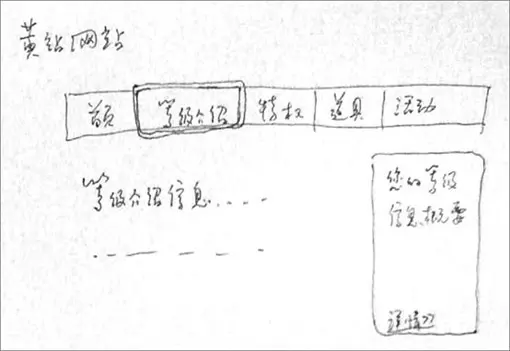 黄钻网站
首页 等级介绍 特权 道具 活动
等级介绍信息....
您的等级
信息概要
详情>>